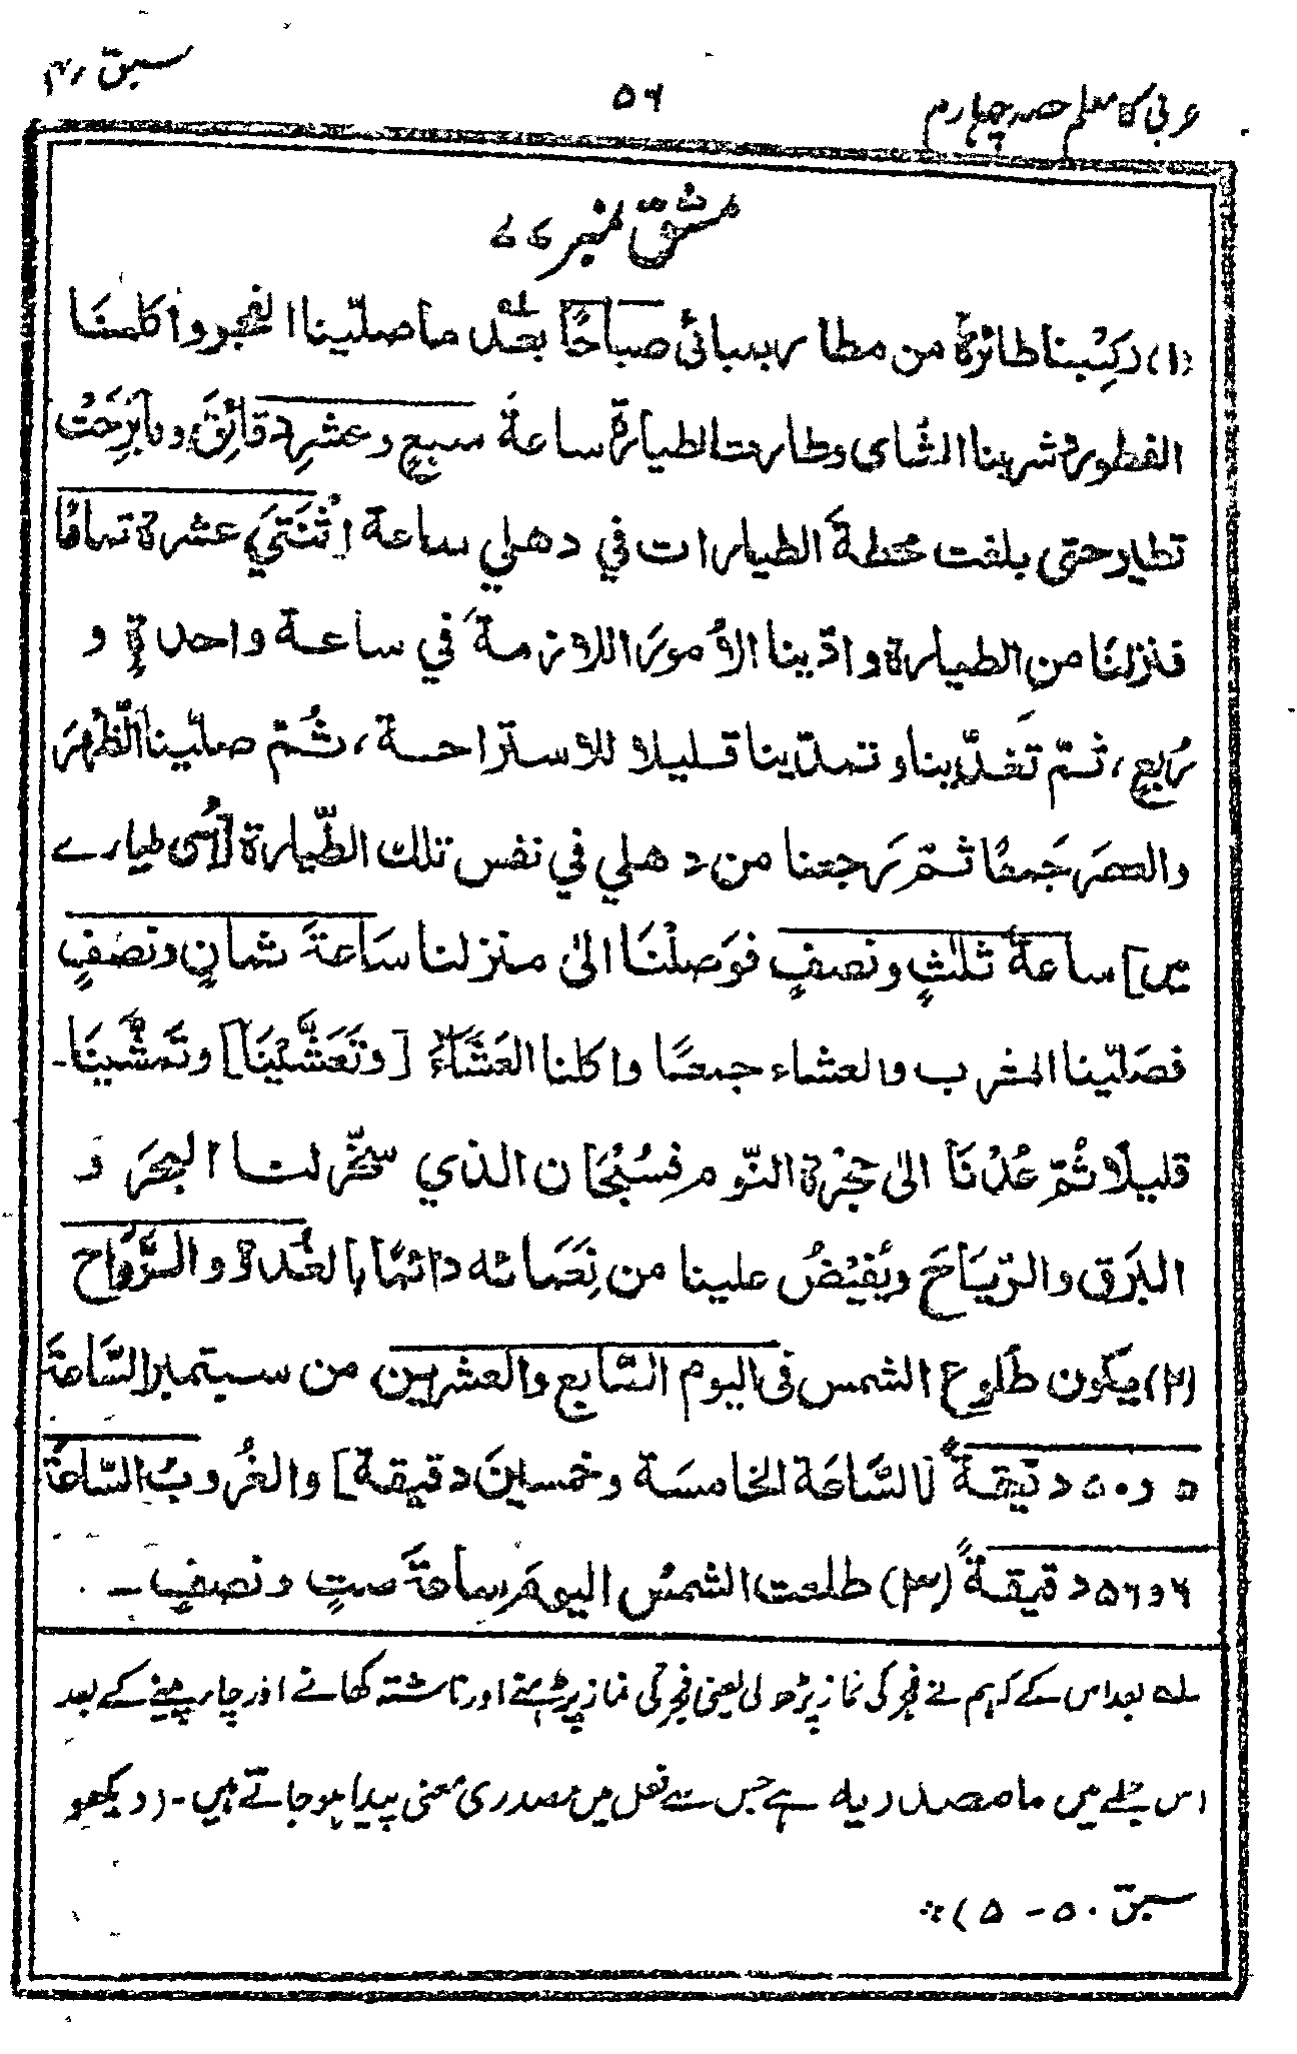 عربی کا معلم حصہ چہارم
۵۶
سبق
مشق نمبر ۷۷
(۱) رَكِبْنا طائرةً من مطار بمبائی صباحًا بعدَ ما صلّينا الفجر واكلنَا
الفطور وشربنا الشای وطارت الطيارة ساعةَ سبعٍ وعشرِ دقائِقَ وما بَرِحَتْ
تطير حتى بلغت محطةَ الطيارات في دهلي ساعة اثْنَتَيْ عشرة تمامًا
فنزلنَا منِ الطيارة وادّينا الأمورَ اللازمةَ في ساعة واحدةٍ و
رُبعٍ، ثمّ تَغدّينا وتمدّدينا قليلا للاستراحة، ثُمّ صلّينا الظُّهرَ
والعصرَ جَمعًا ثمّ رَجعنا من دهلي في نفس تلك الطّيارة [اُسی طیارے
میں] ساعةَ ثلٰثٍ ونصفٍ فوَصلْنَا الىٰ منزلنا سَاعةَ ثمانٍ ونصفٍ
فصَلّينا المغرب والعشاء جمعًا واكلنا العَشَاءَ [وتَعَشَّيْنَا] وتَمشَّينَا۔
قليلًا ثُمّ عُدْنَا الىٰ حُجْرة النّوم فسُبْحان الذي سخّر لنا البحرَ و
البَرق والرّيَاحَ ويُفيْضُ علينا من نِعَمائه دائمًا بالغُدوّ والرَّوَاح
(۲) يكون طُلوع الشمس فی اليوم السّابع والعشرين من سبتمبر السّاعةَ
۵ و ۵۰ دقيقةً [السَّاعَة الخامسَة وخمسينَ دقيقة] والغُروبُ السّاعةَ
۶ و ۵۶ دقيقةً (۳) طلعت الشمسُ اليومَ ساعةَ ستٍ ونصفٍ ۔
لہ بعد اس کے کہ ہم نے فجر کی نماز پڑھ لی یعنی فجر کی نماز پڑہنے اور ناشتہ کھانے اور چار پینے کے بعد
اس جملے میں ما مصدریہ ہے جس سے فعل میں مصدری معنی پیدا ہو جاتے ہیں۔ (دیکھو
سبق ۵۰ - ۵)